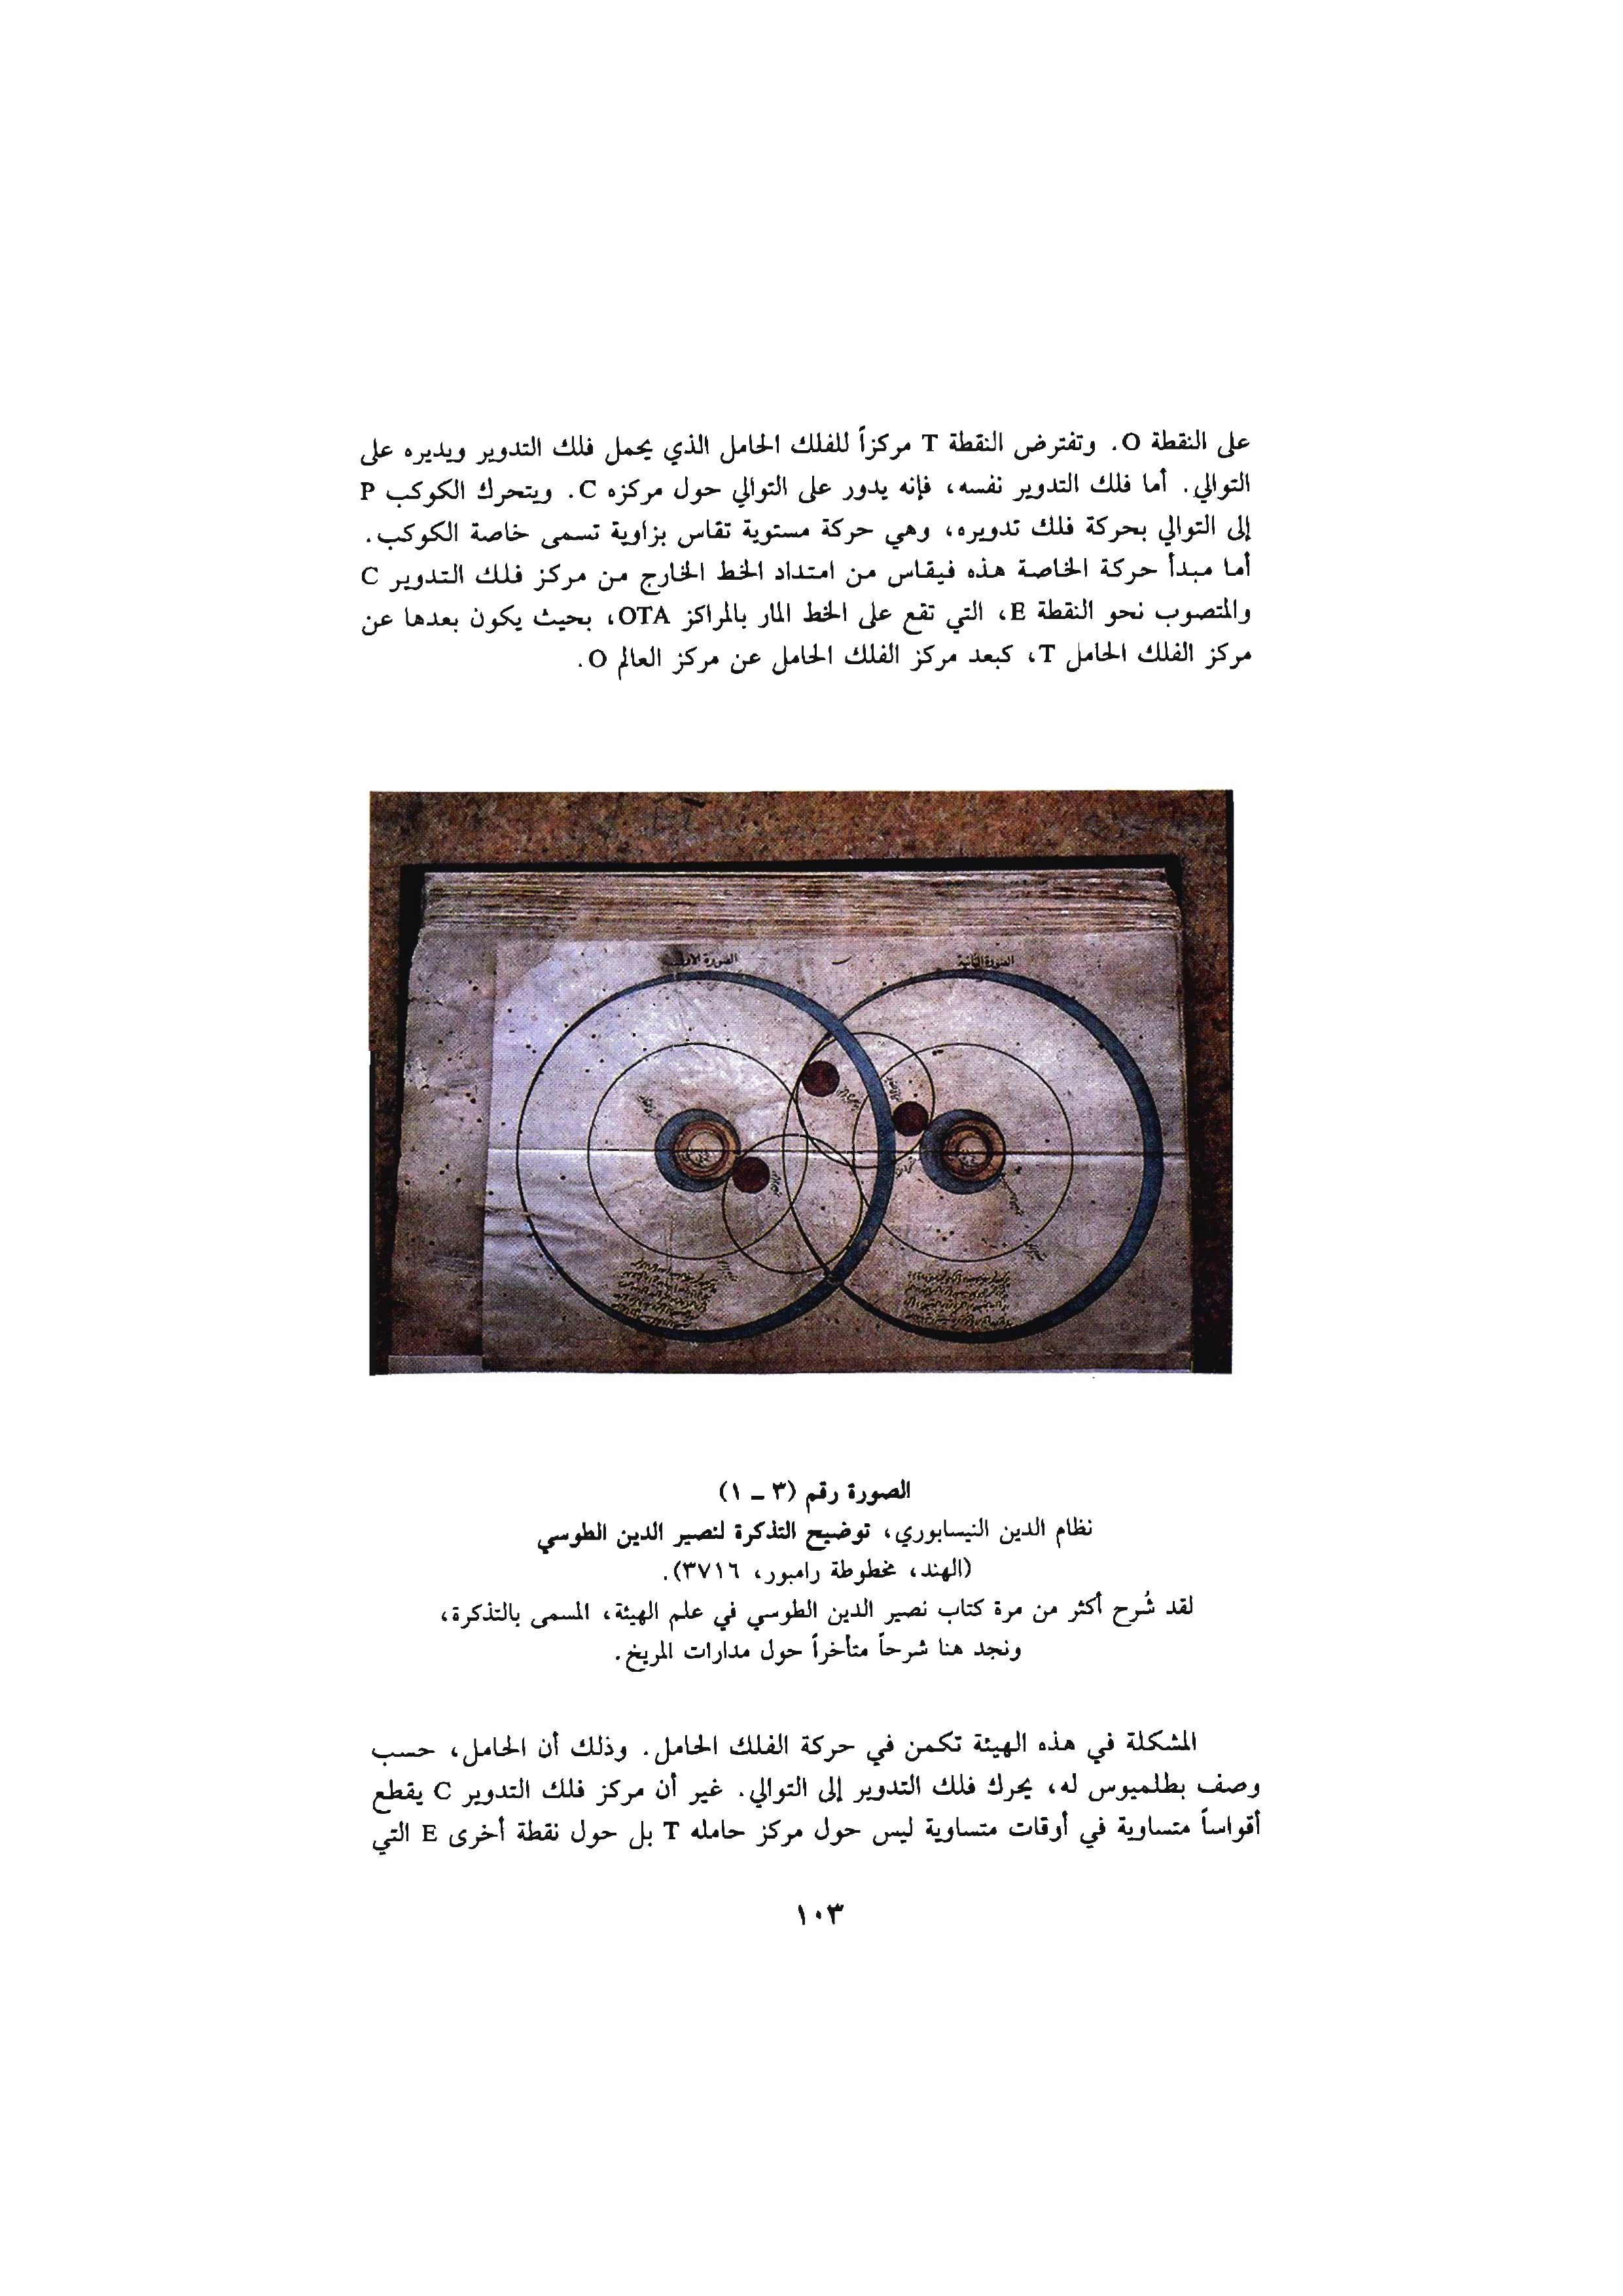 على النقطة O. وتفترض النقطة T مركزاً للفلك الحامل الذي يحمل فلك التدوير ويديره على
التوالي. أما فلك التدوير نفسه، فإنه يدور على التوالي حول مركزه C. ويتحرك الكوكب P
إلى التوالي بحركة فلك تدويره، وهي حركة مستوية تقاس بزاوية تسمى خاصة الكوكب.
أما مبدأ حركة الخاصة هذه فيقاس من امتداد الخط الخارج من مركز فلك التدوير C
والمتصوب نحو النقطة E، التي تقع على الخط المار بالمراكز OTA، بحيث يكون بعدها عن
مركز الفلك الحامل T، كبعد مركز الفلك الحامل عن مركز العالم O.
الصورة الثانية
الصورة الاولى
الصورة رقم (٣ ـ ١)
نظام الدين النيسابوري، توضيح التذكرة لنصير الدين الطوسي
(الهند، مخطوطة رامبور، ٣٧١٦).
لقد شُرح أكثر من مرة كتاب نصير الدين الطوسي في علم الهيئة، المسمى بالتذكرة،
ونجد هنا شرحاً متأخراً حول مدارات المريخ.
المشكلة في هذه الهيئة تكمن في حركة الفلك الحامل. وذلك أن الحامل، حسب
وصف بطلميوس له، يحرك فلك التدوير إلى التوالي. غير أن مركز فلك التدوير C يقطع
أقواساً متساوية في أوقات متساوية ليس حول مركز حامله T بل حول نقطة أخرى E التي
١٠٣